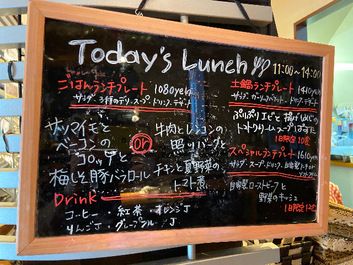 Today's Lunch 11:00〜14:00
ごはんランチプレート 1080yen
サラダ・3種のデリ・スープ・ドリンク・デザート
サツマイモと
ベーコンの
コロッケと
梅しそ豚バラロール
or
牛肉とレンコンの
照りバーグと
チキンと夏野菜の
トマト煮
Drink
コーヒー・紅茶・オレンジJ
りんごJ・グレープフルーツJ
土鍋ランチプレート 1410yen
サラダ・ガーリックバケット・ドリンク・デザート
ぷりぷりエビと
トマトクリーム
1日限定10食
スペシャルランチプレート 1610yen
サラダ・スープ・ドリンク・自家製
自家製ローストビーフと
野菜のキッシュ
1日限定12食